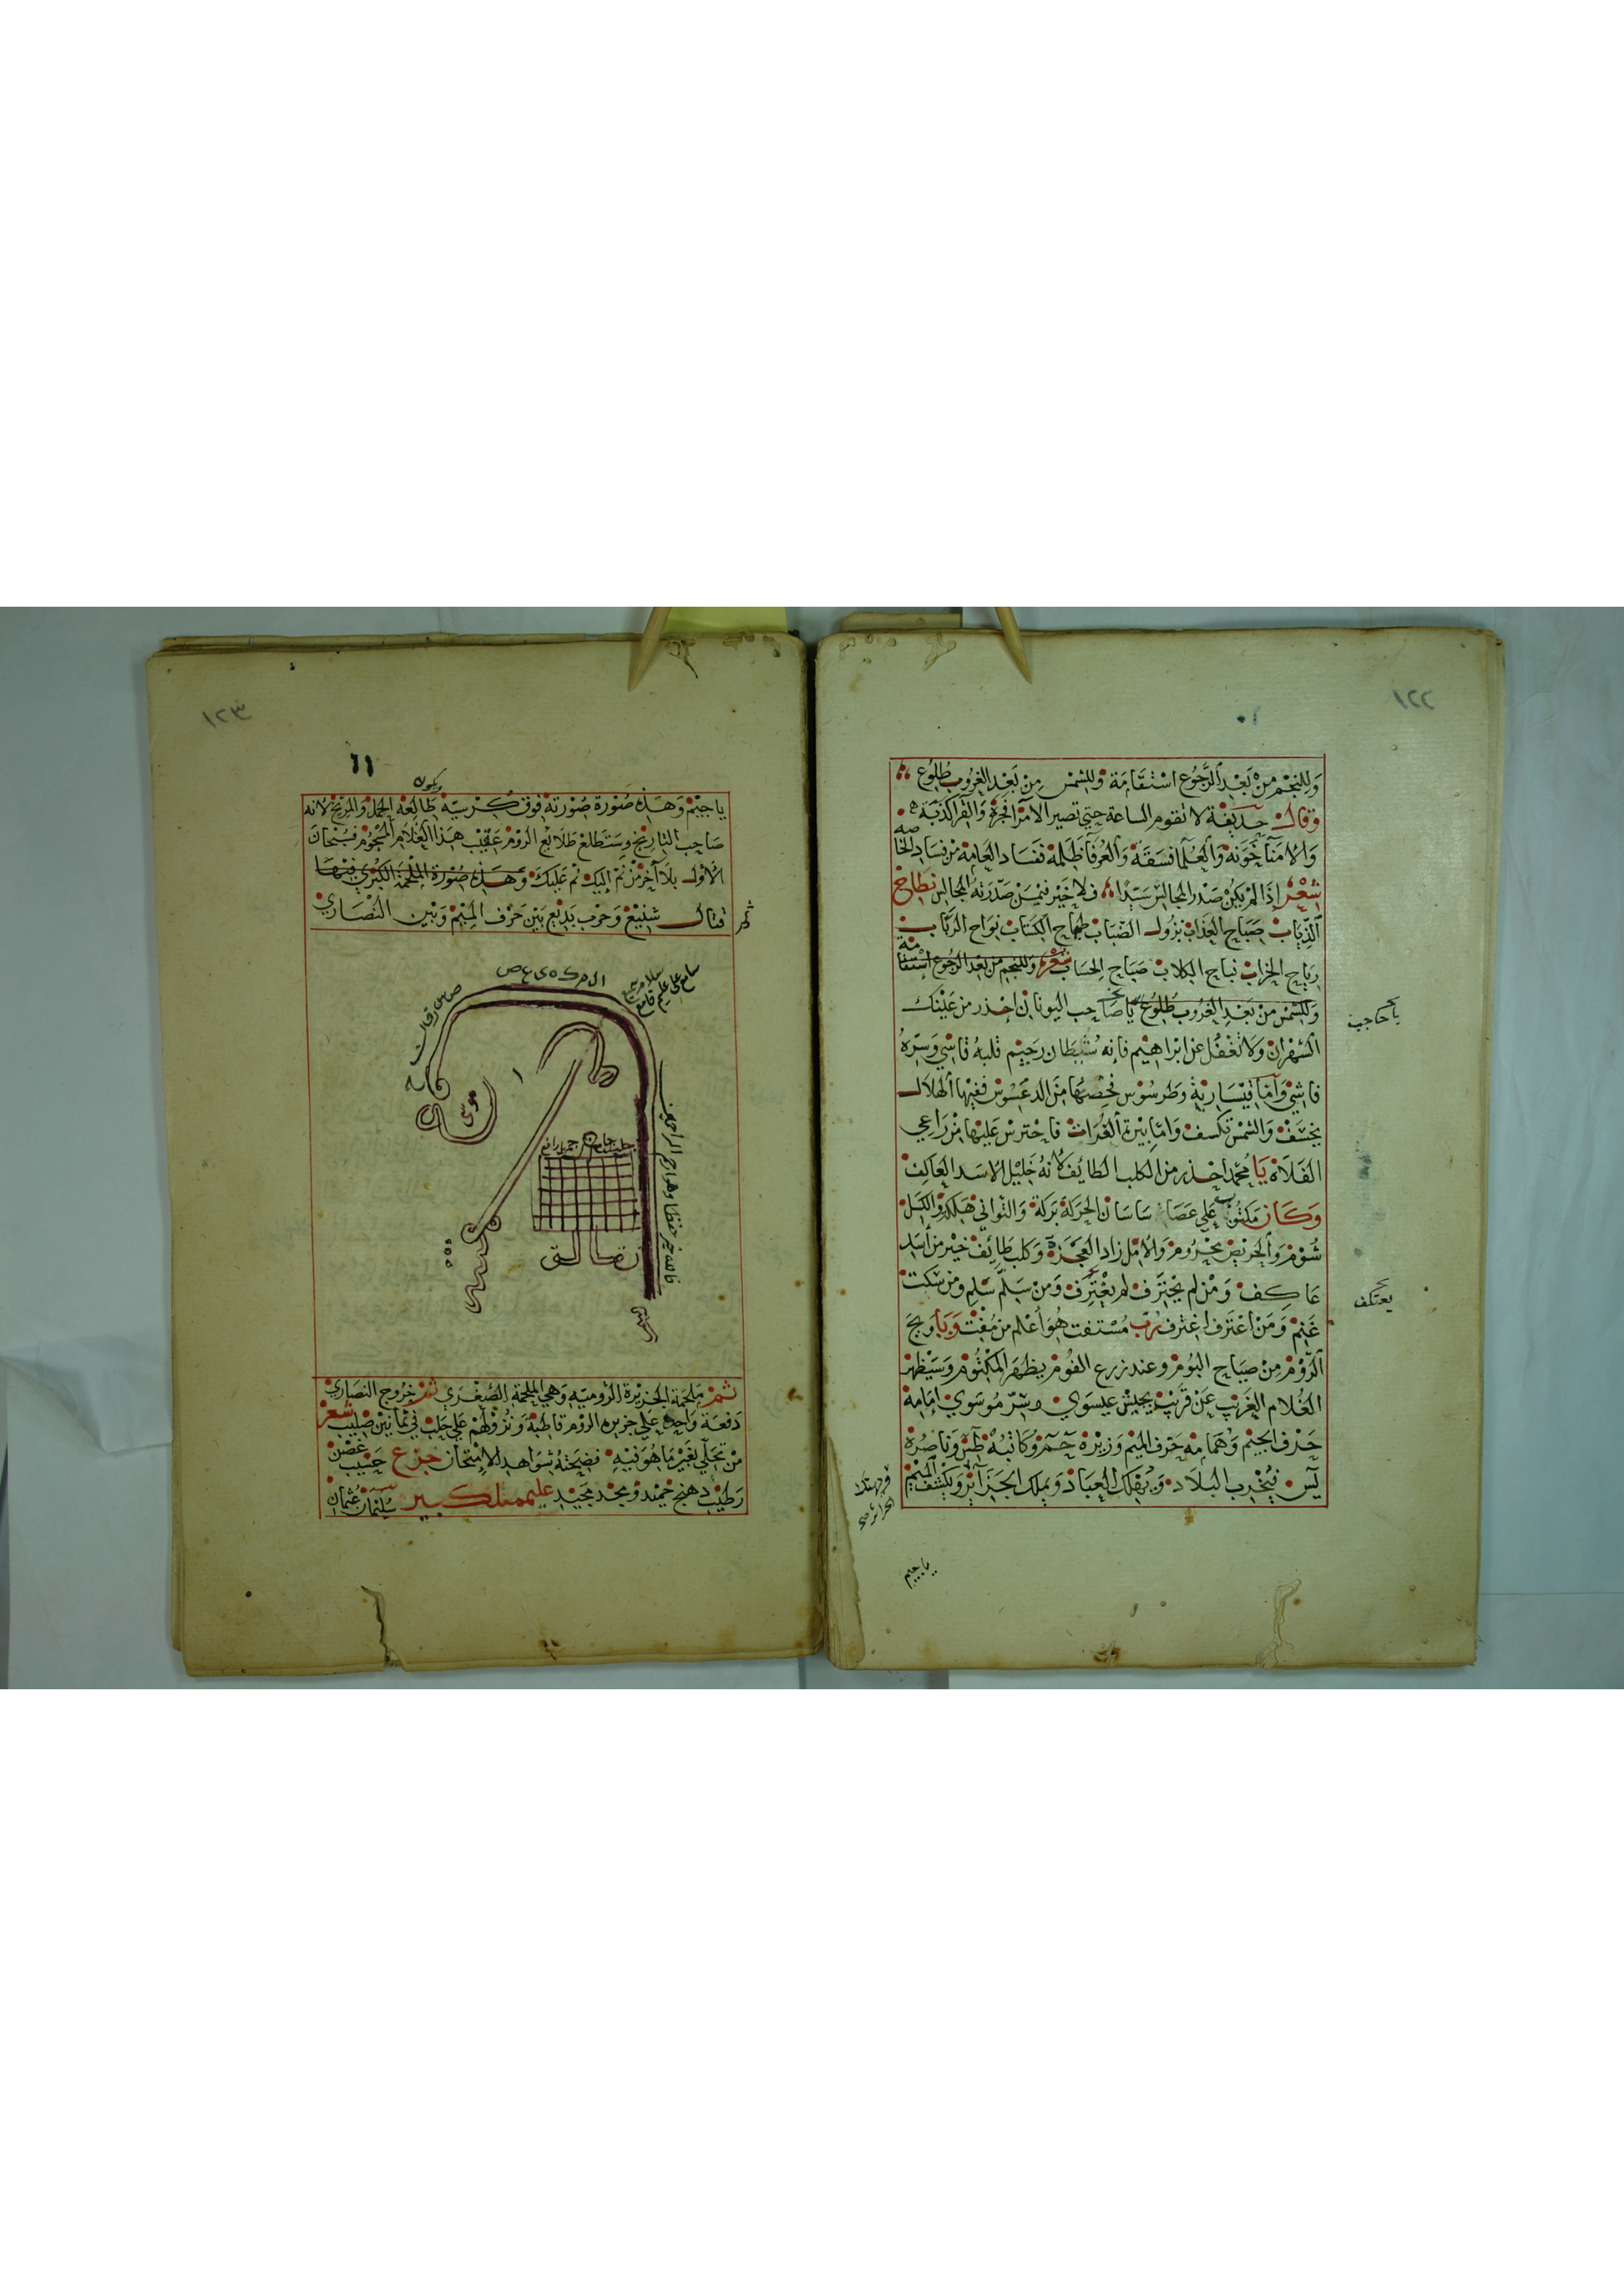 ١٢٢
وَللنَجْم مِنْ بَعْدِ الرُّجُوعِ اسْتقَامَة وَللشمْس مِنْ بَعْدِ الغرُوب طُلُوع
وَقَالَ حذيفة لا تقوم الساعة حتي تصير الامَرآ فجرة وَالقرا كذبَه
وَالامَنآ خَوَنة وَالعُلَمآ فسَقَة وَالعُرَفآ ظَلمة ففسَاد العَامة من فسَاد الخاصه
شِعْر إذَا لم يكن صَدْر المجالس سَيّدا فلا خَيْر فيمَنْ صَدّرَته المجالس نطاح
الذياب صَبَاح العذاب نزول الضباب طماح الكتاب نواح الركاب
رياح الخراب نباح الكلاب صَبَاح الحسَاب شِعْر وَللنجم من بَعد الرجوع استقامة
وَللشمْس منْ بَعْدِ الغرُوب طلُوع يَا صَاحب اليونان احذر من عَيْنك
السَّهْرَان وَلا تغفُل عن ابراهيم فانه شَيْطان رَجيْم قلبهُ قاسي وَسرّهُ
فاشِيْ وَأمّا قيْسَارية وَطرسُوس فحصنها من الدعسُوس ففيها الهلال
يخسَف وَالشمس تكسف وَامّا بيرة الفُرات فاحترسْ عَليهَا من رَاعي
الفلاة يَا مُحَمد احذر من الكلب الطائف لانهُ خَليل الاسَد العَاكِف
وَكَان مَكتُوب عَلي عَصَا سَاسَان الحَرَكة بَركة وَالتواني هَلكه وَالكسَل
شُوْم وَالحريْصْ محرُوم وَالامَل زاد العَجَزة وَكلب طايِف خير من أسَد
عَاكِف وَمْن لم يحْترف لم يعْتِرف وَمن سَلّم سَلِم وَمن سَكت
غَنِم وَمَنْ اعْتَرف اغترف رُبّ مُسْتفت هُوَ أعْلم من مُفْت وَيَا وَيحَ
الرُّوْم مِنْ صِيَاح البُوْم وعند زرع الفوْم يظهَر المكتُوم وَسَيظهر
الغُلام الغَريْب عَنْ قريْب بجيْش عيسَوي وسّر مُوسَوي امَامهُ
حَرف الجيم وَهمَامه حَرف الميم وَزيْرهُ حم وَكاتبهُ طس وَناصرهُ
يس فيُخْرب البلاد وَيُهْلك العِبَاد وَيملك الجزآئر وَيكشف الميْم
يا حكاجيه
يعتكف
يا جيم
١٢٣
٦١
ويكون
يا جيْم وَهَذه صَوْرة صُوْرته فوق كُرسيّه طَالعُه الحَمل وَالمرّيْخ لانه
صَاحب التاريْخ وسَتطلع طَلائع الروْم عَقيْب هَذا الغُلام المجهُوم فسُبْحَانَ
الاوّل بلا آخر منْ ثم إليك ثم عَليك وَهَذه صُوْرة المَلحَمة الكبْري فيْهَا
قتال شنيْع وَحَرب بديْع بَيْن حَرْف الميْم وَبَيْن النصَاري
ال م ر ك ه ي ع ص
سلام
موسي
ا
فالله خير حفظا وهو ارحم الراحمين
ثم مَلحَمة الجزيْرة الرُّوميّه وَهي الملحمَة الصُغْرَي ثم خرُوج النصَاري
دَفعَة وَاحِدة عَلي جزيره الروم قاطبَة وَنزوْلهمْ عَلي حَلب في ثمَانيْن صَليب شعر
من تحَلّي بغَيْر مَا هُوَ فيْهِ فضحَتهُ شوَاهد الامْتحَان جزع حَبيب غصْن
رَطيْب دهنج حَميْد وَمجد مَجيْد عليم ملك كبير سُليْمَان عُثمَان